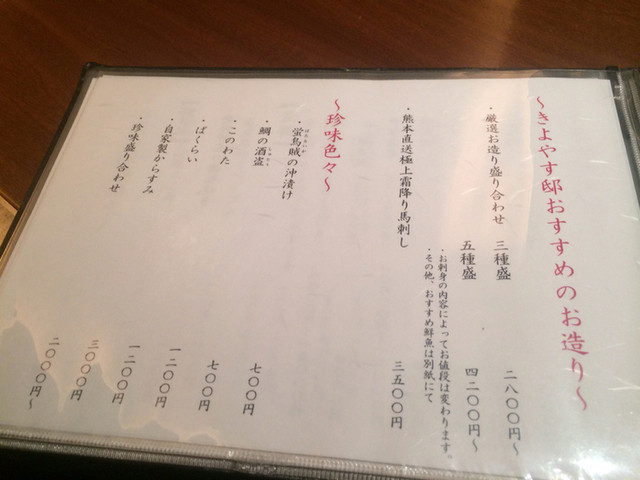 ～きよやす邸おすすめのお造り～
・厳選お造り盛り合わせ 三種盛 二八〇〇円～
五種盛 四二〇〇円～
・お刺身の内容によってお値段は変わります。
・その他、おすすめ鮮魚は別紙にて
・熊本直送極上霜降り馬刺し 三五〇〇円
～珍味色々～
・蛍烏賊の沖漬け 七〇〇円
ほたるいか
・鯛の酒盗 七〇〇円
しゅとう
・このわた 一二〇〇円
・ばくらい 一二〇〇円
・自家製からすみ 三〇〇〇円
・珍味盛り合わせ 二〇〇〇円～